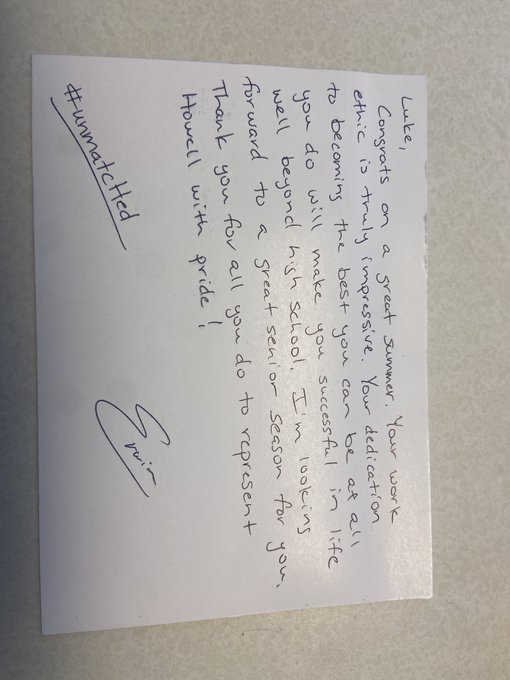 Luke,
Congrats on a great summer. Your work
ethic is truly impressive. Your dedication
to becoming the best you can be at all
you do will make you successful in life
well beyond high school. I'm looking
forward to a great senior season for you.
Thank you for all you do to represent
Howell with pride!
#unmatcHed
Erwin